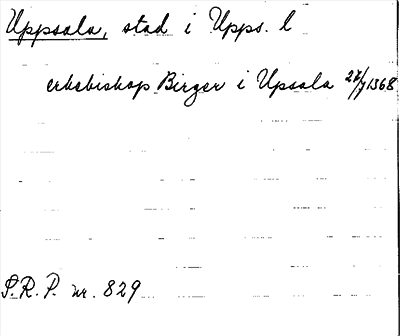 Uppsala, stad i Upps. l
erkebiskop Birger i Upsala 27/7 1368
S.R.P. nr. 829